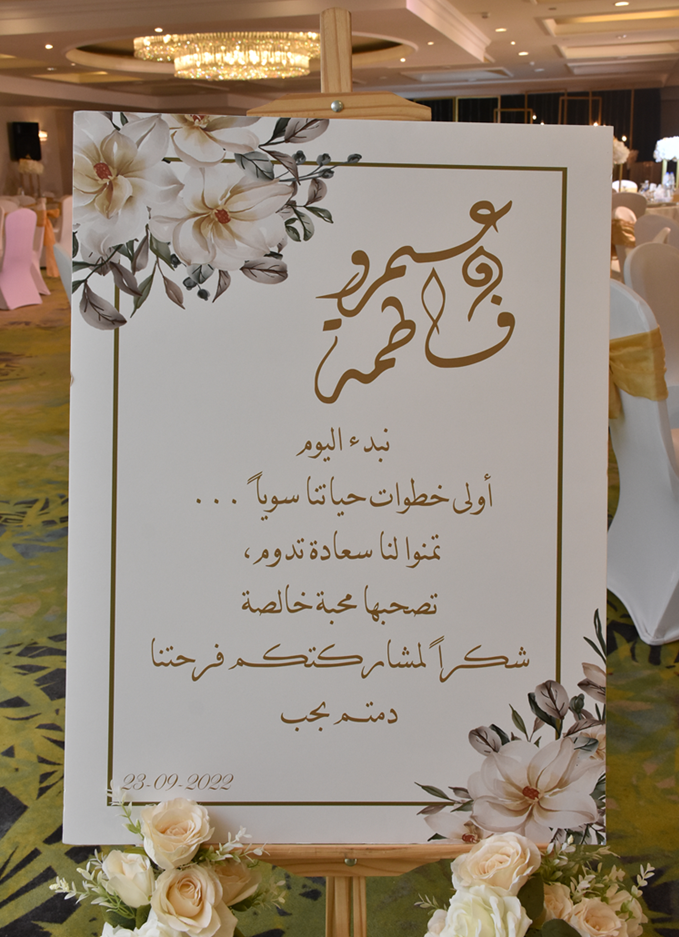 عمرو
و
فاطمة
نبدء اليوم
أولى خطوات حياتنا سوياً ...
تمنوا لنا سعادة تدوم،
تصحبها محبة خالصة
شكراً لمشاركتكم فرحتنا
دمتم بحب
23-09-2022